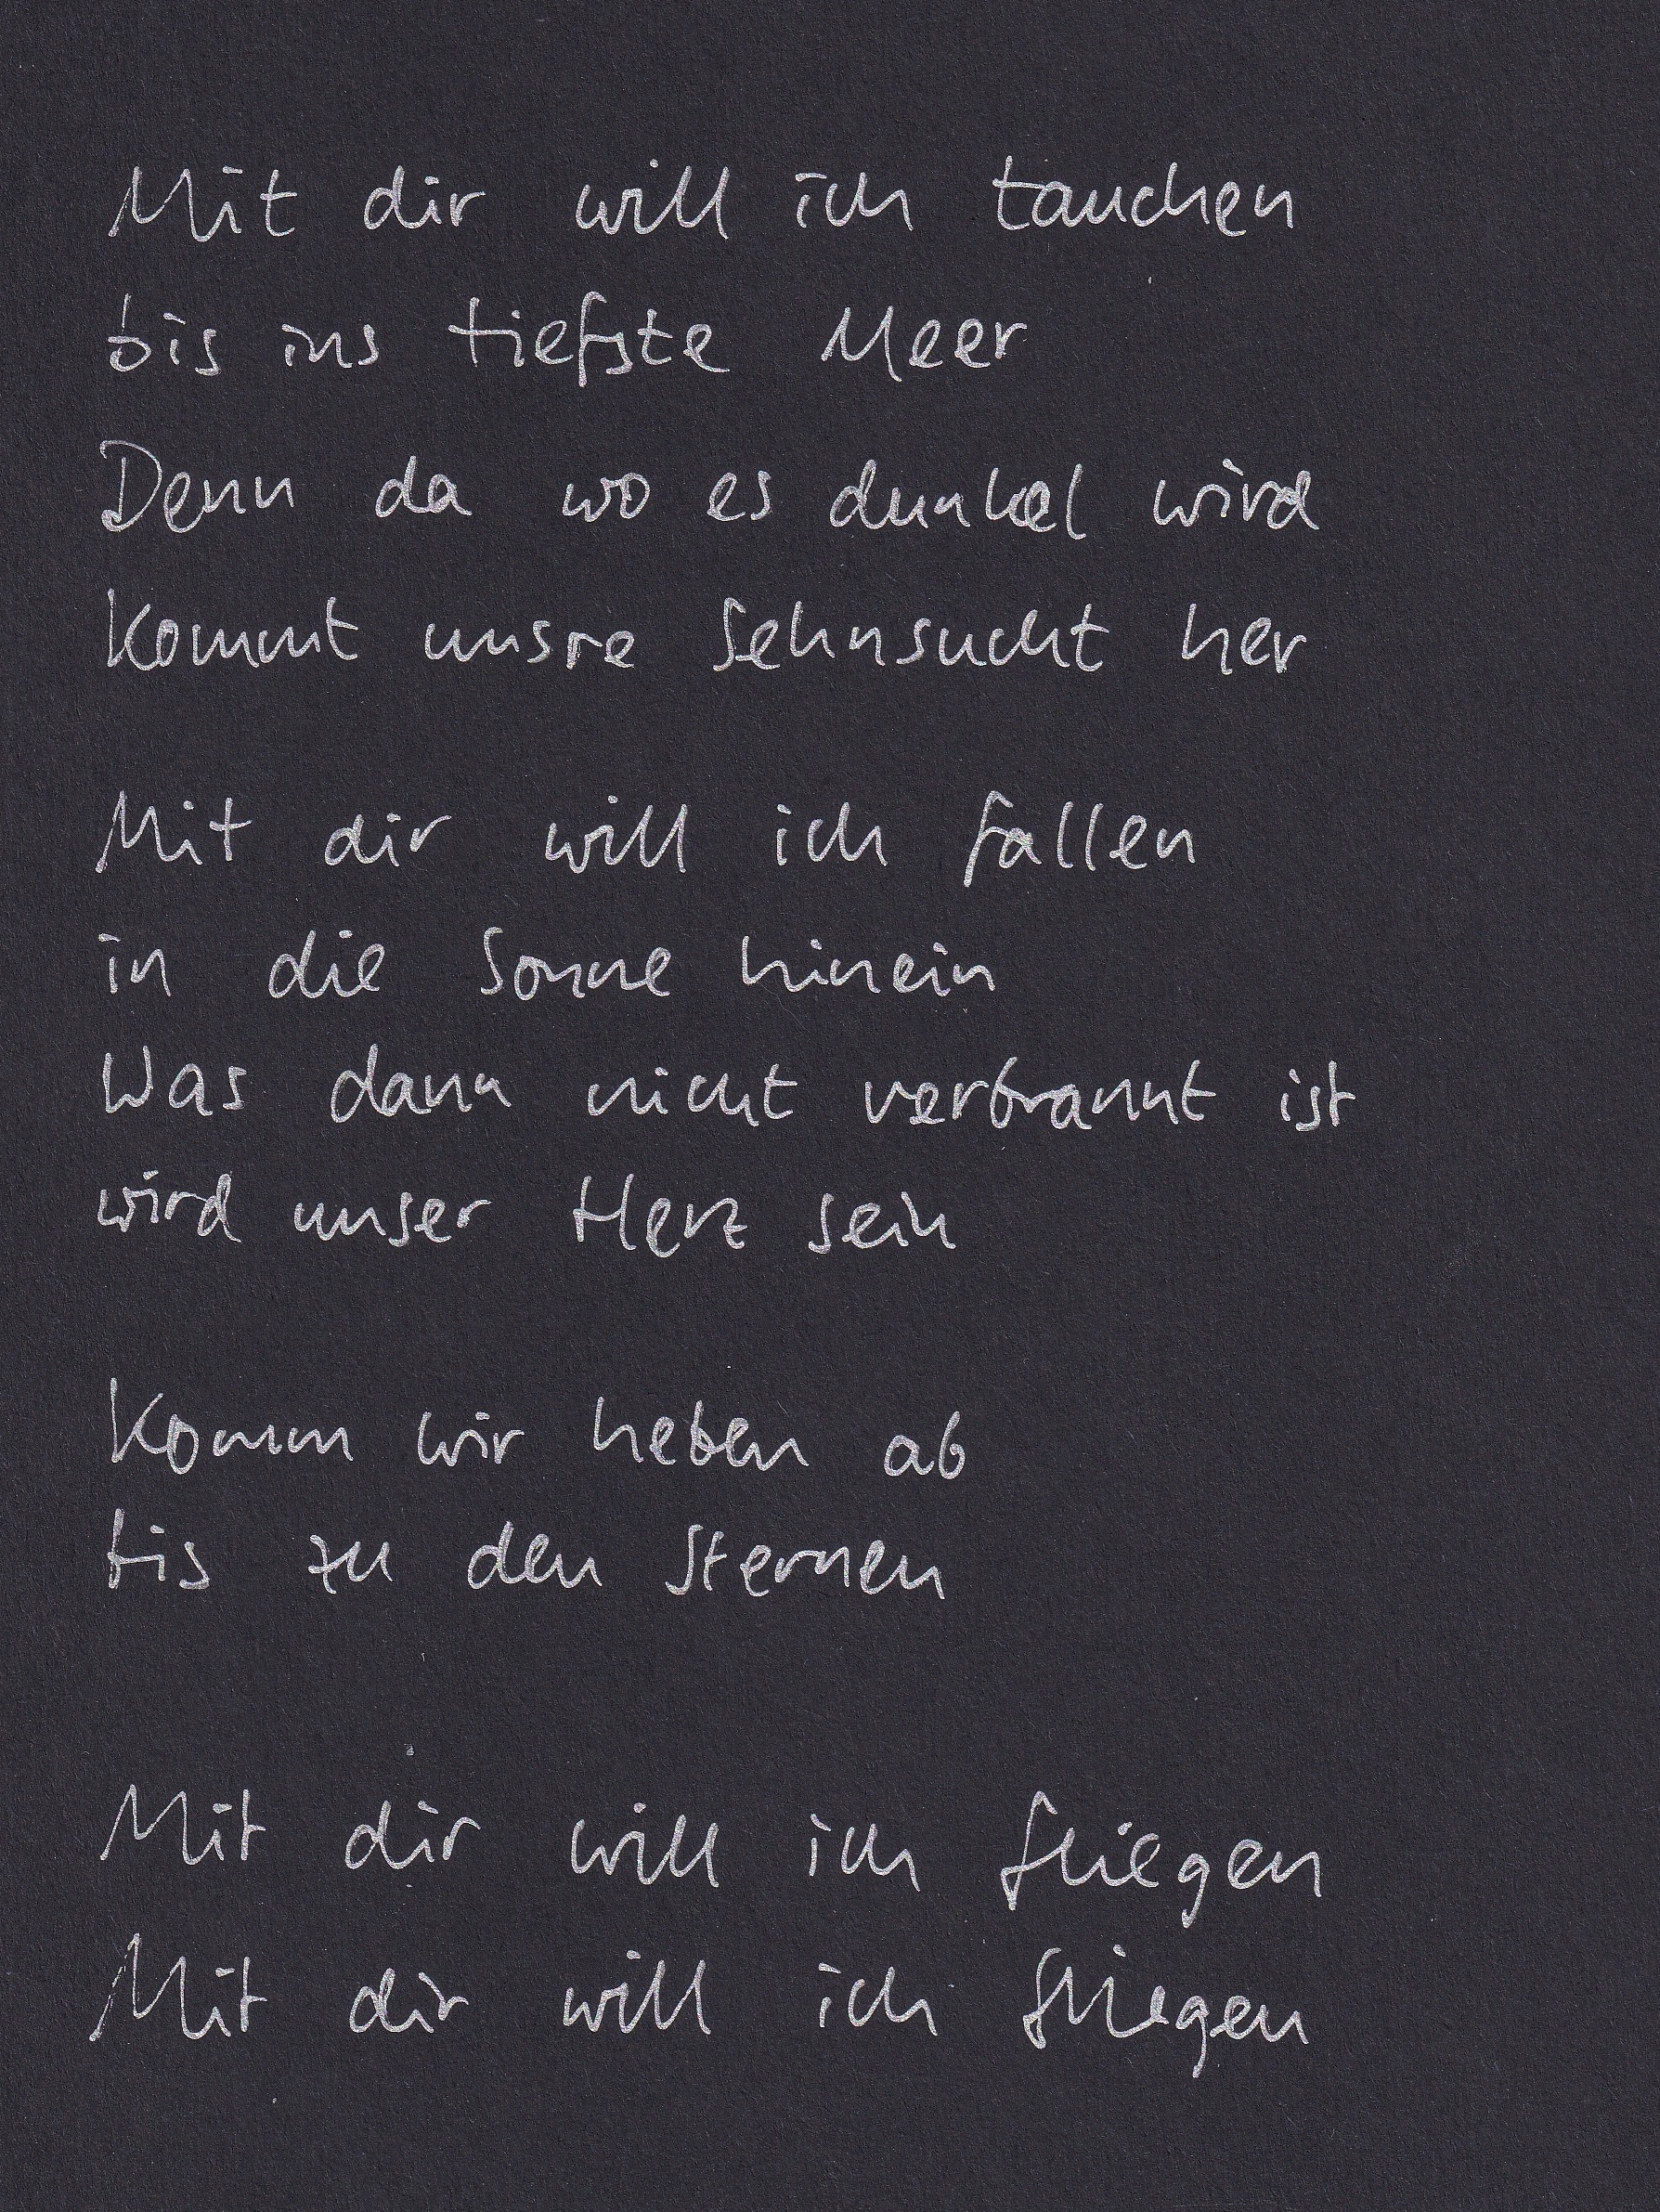 Mit dir will ich tauchen
bis ins tiefste Meer
Denn da wo es dunkel wird
kommt unsre Sehnsucht her
Mit dir will ich fallen
in die Sonne hinein
Was dann nicht verbrannt ist
wird unser Herz sein
Komm wir heben ab
bis zu den Sternen
Mit dir will ich fliegen
Mit dir will ich fliegen